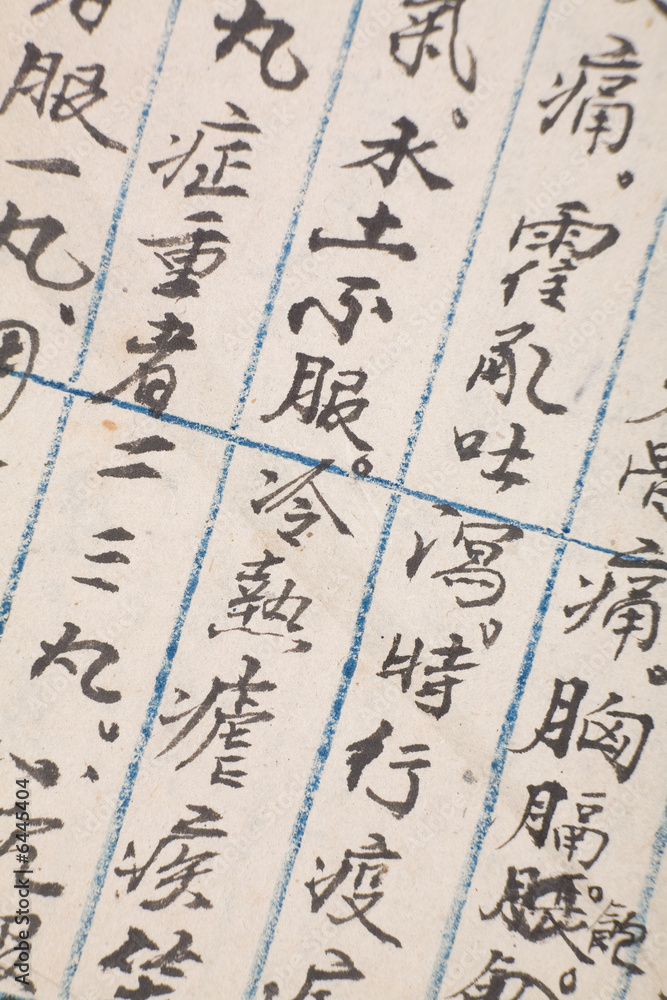 骨痛。胸膈
痛。霍乱吐瀉。時行疫
氣。水土不服。冷熱瘧疾等
丸症重者二三丸。小
服一丸、